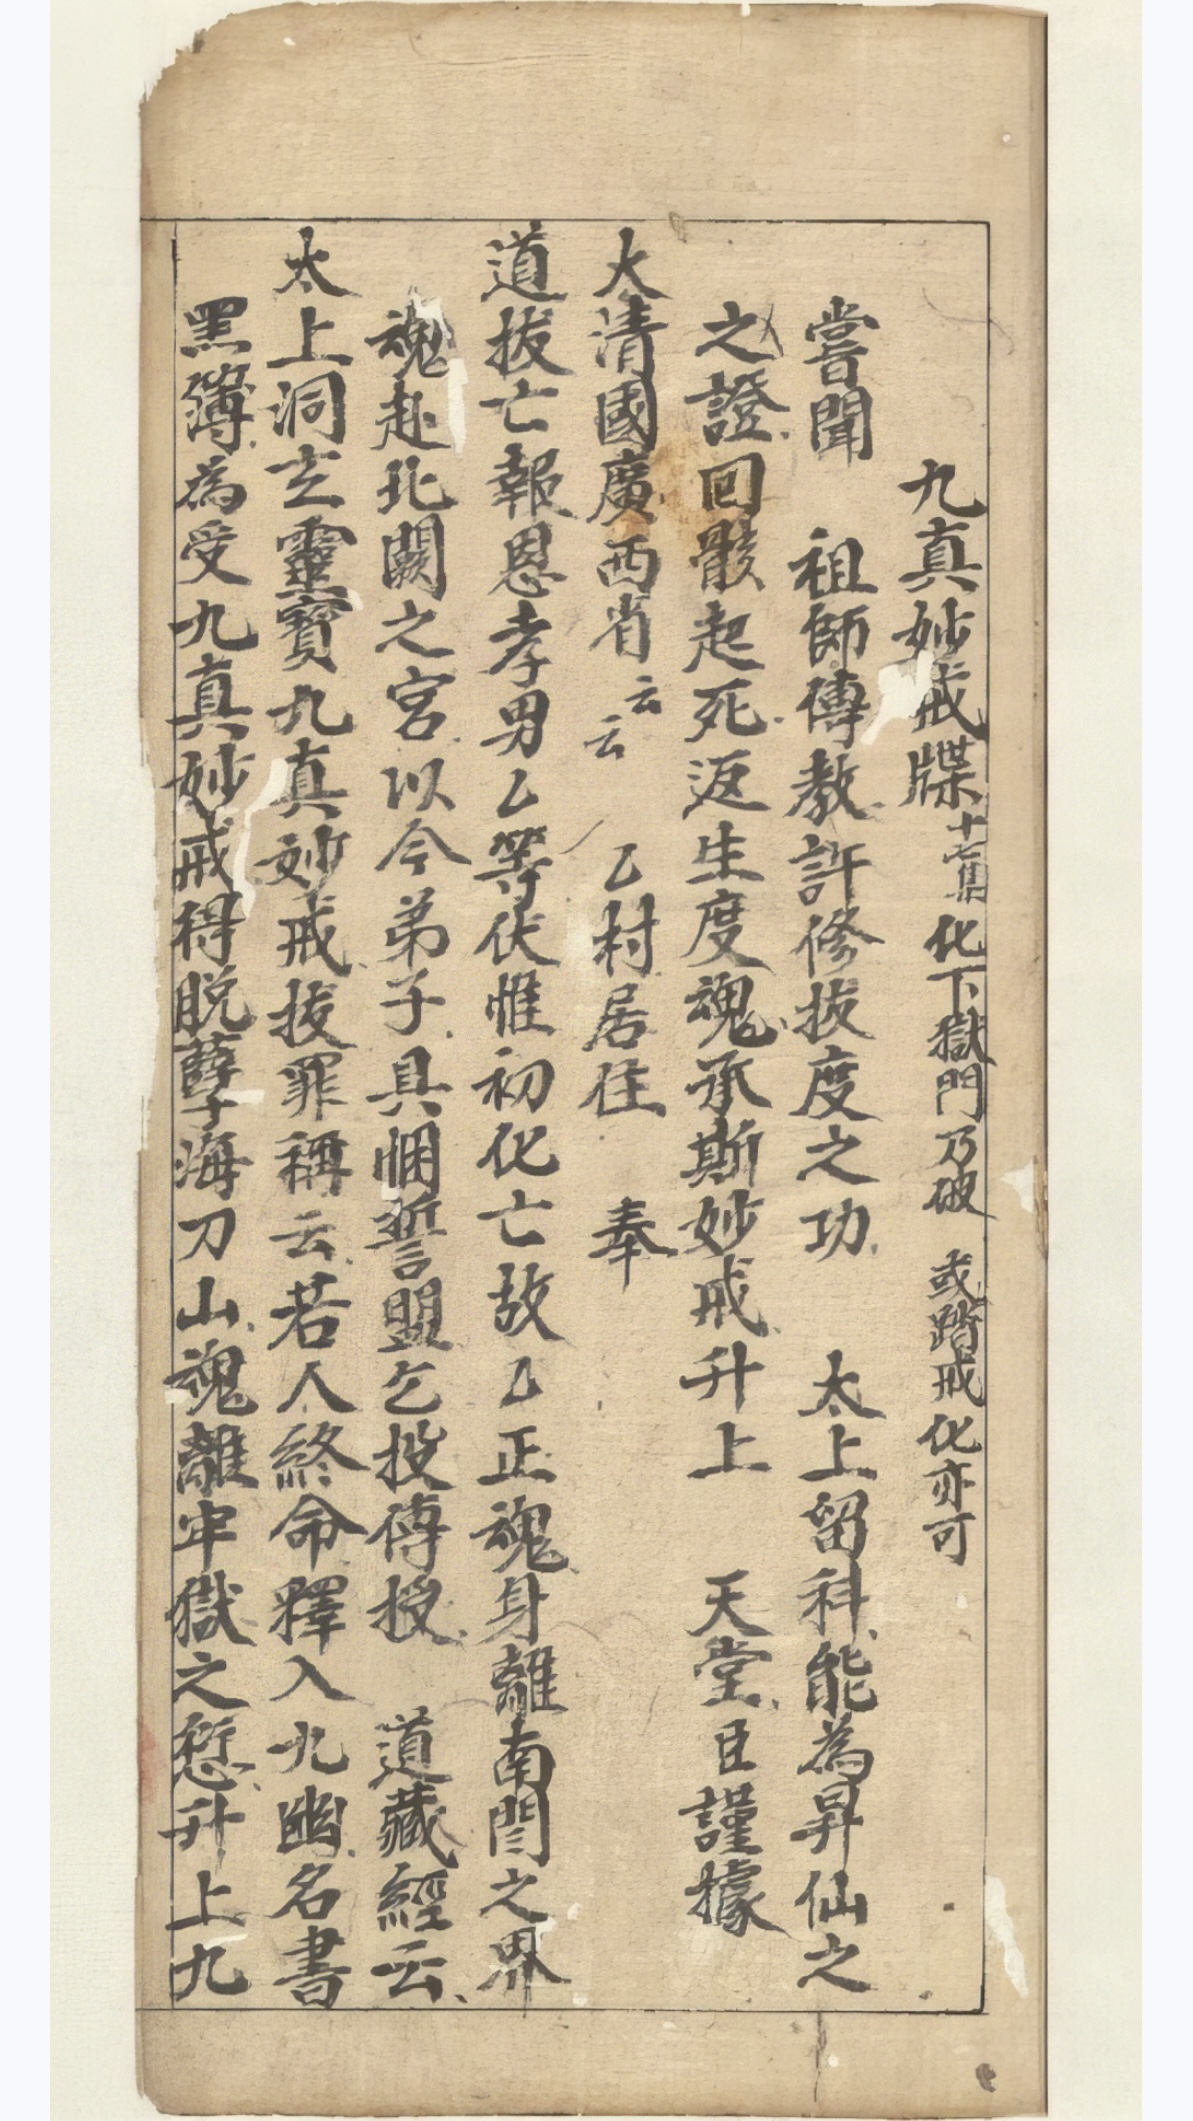 九真妙戒牒 化下獄門乃破 或踏戒化亦可
嘗聞 祖師傳教許修拔度之功 太上留科能為昇仙之
之證回骸起死返生度魂承斯妙戒升上 天堂臣謹據
大清國廣西省云云 乙村居住 奉
道拔亡報恩孝男乙等伏惟初化亡故乙正魂身離南閻之界
魂赴北闕之宮以今弟子具悃誓盟乞投傳授 道藏經云
太上洞玄靈寶九真妙戒拔罪稱云若人終命釋入九幽名書
黑簿為受九真妙戒得脫孽海刀山魂離牢獄之愆升上九